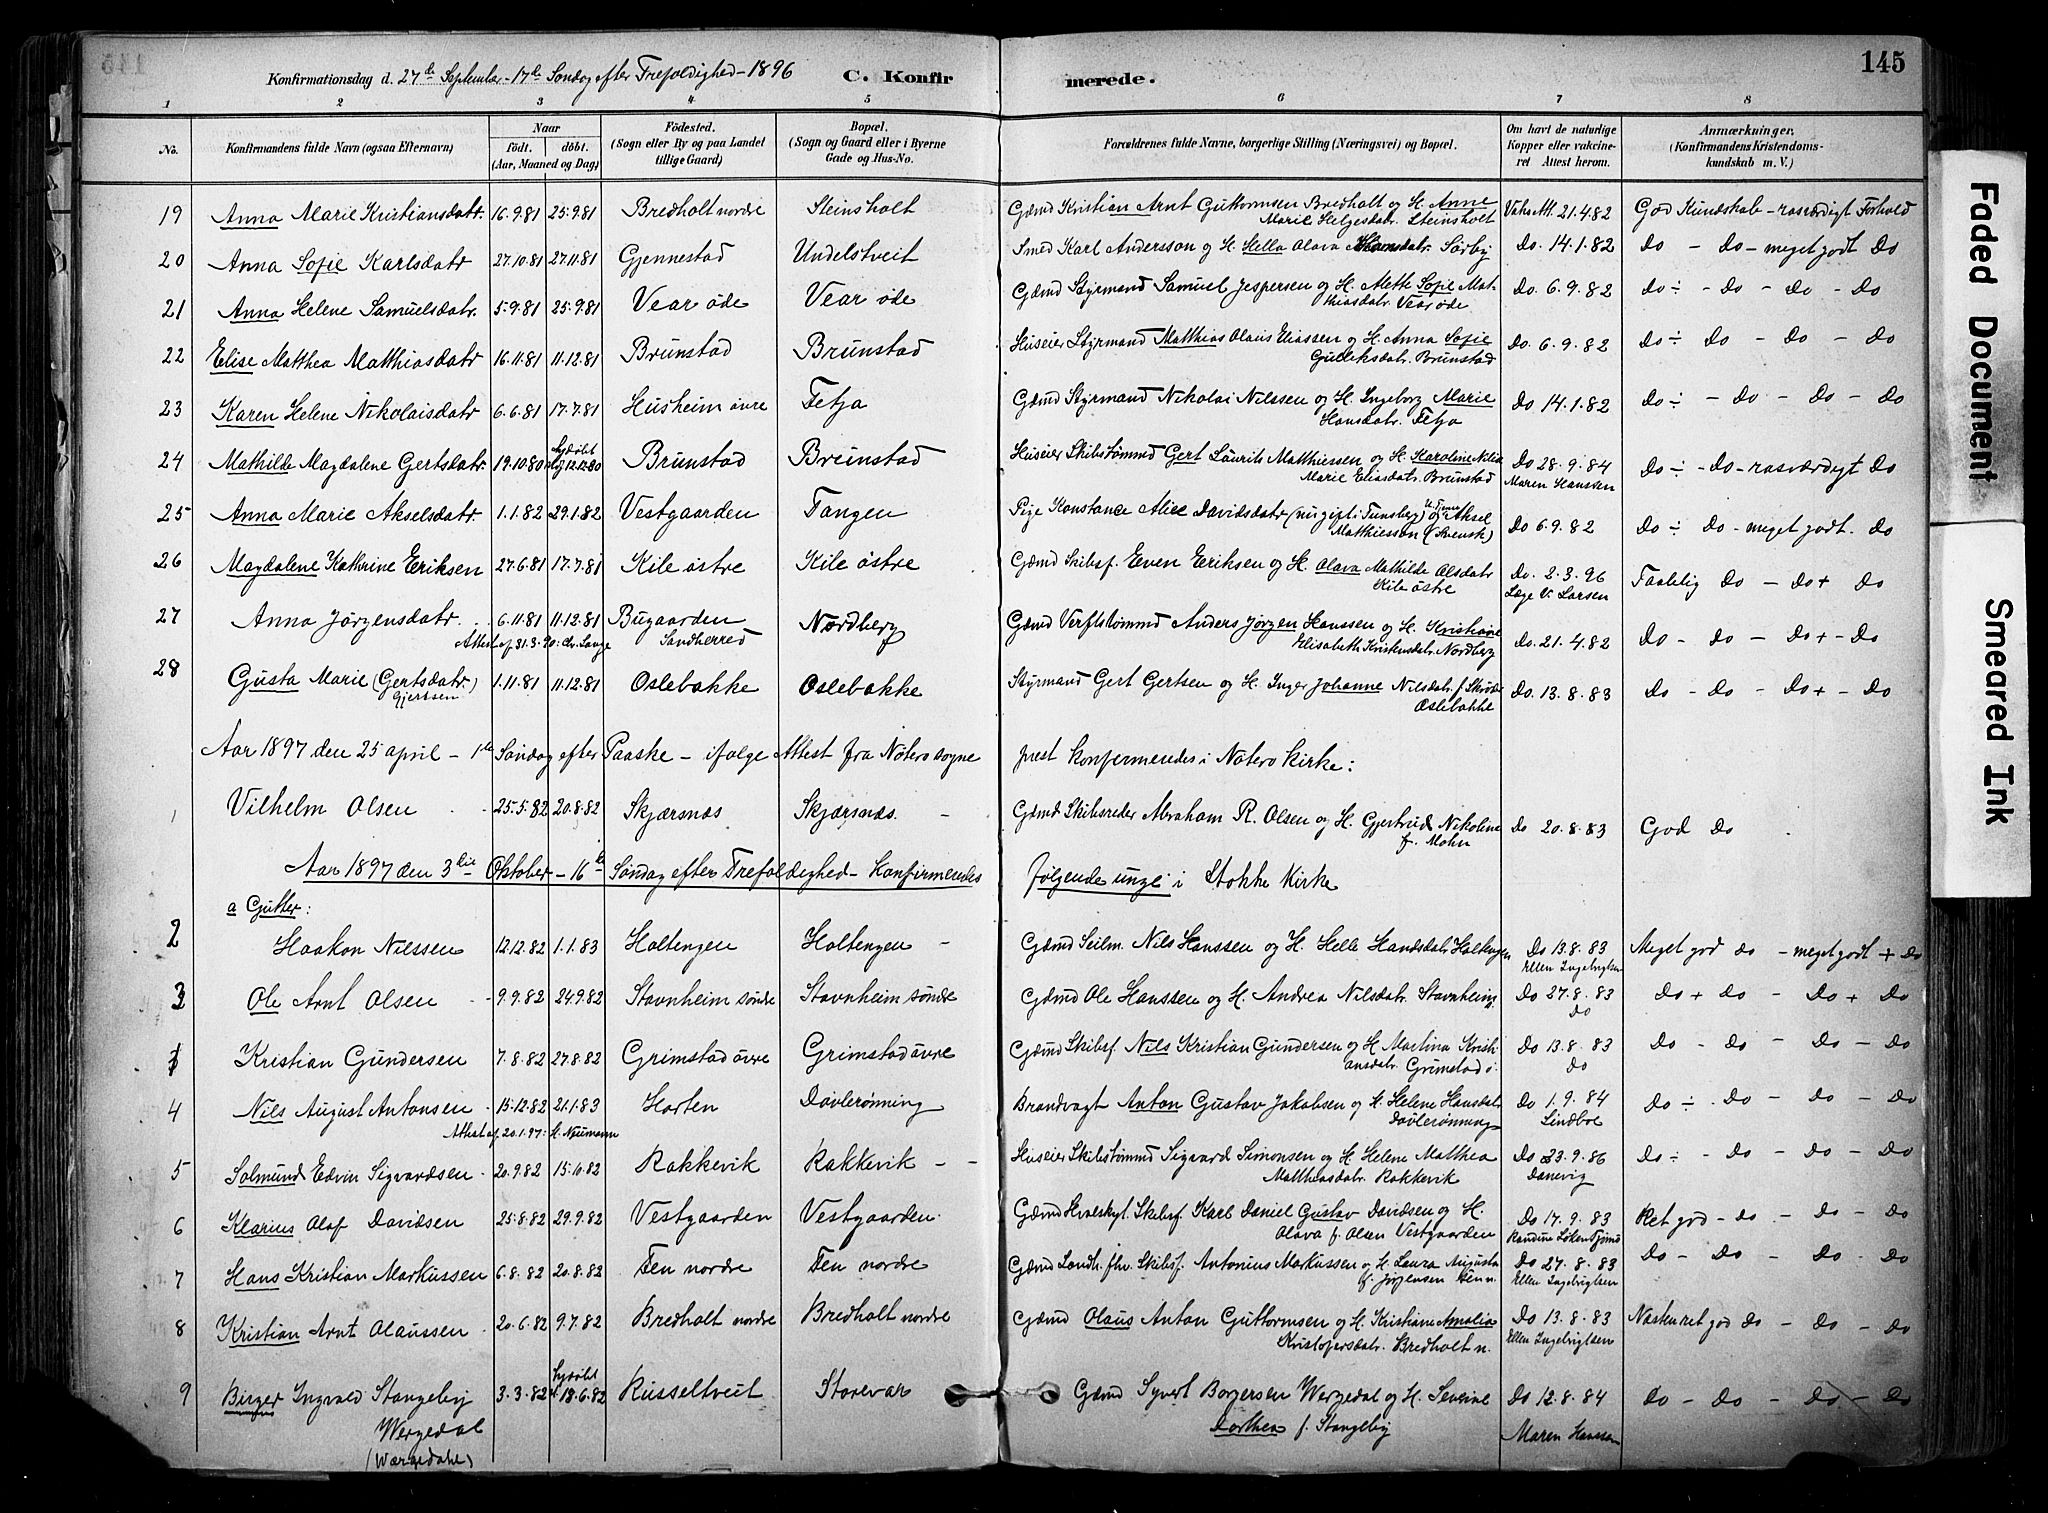 145
Konfirmationsdag d. 27de September - 17de Søndag efter Trefoldighed - 1896 C. Konfirmerede.
1 2 3 4 5 6 7 8
No. Konfirmandens fulde Navn (ogsaa Efternavn) Naar Født. døbt. (Aar, Maaned og Dag) Födested. (Sogn eller By og paa Landet tillige Gaard) Bopæl. (Sogn og Gaard eller i Byerne Gade og Hus-No. Forældrenes fulde Navne, borgerlige Stilling (Næringsvei) og Bopæl. Om havt de naturlige Kopper eller vakcineret Attest herom. Anmærkninger. (Konfirmandens Kristendomskundskab m. V.)
19 Anna Marie Kristiansdatr. 16.9.81 25.9.81 Bredholt nordre Steinsholt Gæmd Kristian Arnt Guttormsen Bredholt og H. Anne Marie Helgesdatr. Steinsholt Vaks Att. 21.4.82 God Kundskab - rosværdigt Forhold
20 Anna Sofie Karlsdatr 27.10.81 27.11.81 Gjennestad Undelstveit Smed Karl Andersson og H. Hella Olava Hansdatr. Sörby Do. 14.1.82 Do - Do - meget godt Do
21 Anna Helene Samuelsdatr. 5.9.81 25.9.81 Vear øde Vear øde Gæmd Styrmand Samuel Jespersen og H. Mette Sofie Mathiasdatr. Vear øde Do. 6.9.82 Do ÷ - Do - Do - Do
22 Elise Matthea Matthiasdatr 16.11.81 11.12.81 Brunstad Brunstad Huseier Styrmand Matthias Olaus Eliassen og H. Anna Sofie Gulleksdatr. Brunstad Do. 6.9.82 Do ÷ Do - Do - Do
23 Karen Helene Nikolaisdatr 6.6.81 17.7.81 Husheim övre Fetja Gæmd Styrmand Nikolai Nilssen og H. Ingeborg Marie Hansdatr. Fetja Do 14.1.82 Do ÷ - Do - Do - Do
24 Mathilde Magdalene Gertsdatr. 19.10.80 hjdøbt 12.12.80 Brunstad Brunstad Huseier Skibstømmd Gert Laurits Matthiessen og H. Karoline Nilia Marie Eliasdatr. Brunstad Do 28.9.84 Maren Hanssen Do ÷ - Do - rosværdigt Do
25 Anna Marie Akselsdatr. 1.1.82 29.1.82 Vestgaarden Tangen Pige Konstance Alice Davidsdatr (nu gift i Tunsberg) og Aksel Matthiesson (Svensk) Do 6.9.82 Do ÷ Do - meget godt. Do
26 Magdalene Kathrine Eriksen 27.6.81 17.7.81 Kile östre Kile östre Gæmd Skibsf. Even Eriksen og H. Olava Mathilde Olsdatr Kile östre Do. 2.3.96 Læge V. Larsen Faalelig Do - Do + Do
27 Anna Jørgensdatr. 6.11.81 11.12.81 Bugaarden Sandherred Nordberg Gæmd Verftstømmd Anders Jörgen Hanssen og H. Kristiane Elisabeth Kristensdatr. Nordberg Do. 21.4.82 Do - Do - Do + - Do
Attest af 31.3.90: Chr. Lange
28 Gusta Marie (Gertsdatr.) Gjertsen 1.11.81 11.12.81 Oslebakke Oslebakke Styrmand Gert Gertsen og H. Inger Johanne Nilsdatr. f. Skröder Oslebakke Do. 13.8.83 Do - Do - Do + - Do
Aar 1897 den 25 april - 1ste Søndag efter Paaske - ifølge Attest fra Nøterø sogneprest konfirmeredes i Nøterø Kirke:
1 Vilhelm Olsen 25.5.82 20.8.82 Skjærsnæs Skjærsnæs. - Gæmd Skibsreder Abraham R. Olsen og H. Gjertrud Nikoline f. Mohn Do 20.8.83 God Do
Aar 1897 den 3die Oktober - 16de Søndag efter Trefoldighed - Konfirmeredes følgende unge i Stokke Kirke
a Gutter:
2 Haakon Nilssen 12.12.82 1.1.83 Holtengen Holtengen - Gæmd Seilm. Nils Hanssen og H. Helle Hansdatr Holtengen Do 13.8.83 Ellen Ingebrigtsen Meget god do - meget godt + Do
3 Ole Arnt Olsen 9.9.82 24.9.82 Stavnheim söndre Stavnheim söndre Gæmd Ole Hanssen og H. Andrea Nilsdatr. Stavnheim s. Do 27.8.83 Do Do + Do - Do + Do
Kristian Gundersen 7.8.82 27.8.82 Grimstad övre Grimstad övre Gæmd Skibsf. Nils Kristian Gundersen og H. Martina Kristiansdatr. Grimstad ö. Do 13.8.83 Do Do - Do - Do - Do
4 Nils August Antonsen 15.12.82 21.1.83 Horten Dövlerønning Brandvagt Anton Gustav Jakobsen og H. Helene Hansdatr. Dövlerønning Do 1.9.84 Lindboe Do ÷ Do - Do - Do
Attest af 20.1.97: H. Neumann
5 Salmund Edvin Sigvardsen 20.9.82 15.10.82 Rakkevik Rakkevik - - Huseier Skibstømmd Sigvard Simonsen og H. Helene Matthea Matthiasdatr. Rakkevik Do 23.9.86 Danevig Do ÷ - Do - Do - Do
6 Klarius Olaf Davidsen 25.8.82 29.9.82 Vestgaarden Vestgaarden. Gæmd Hvalskyt. Skibsf. Karl Daniel Gustav Davidsen og H. Olava f. Olsen Vestgaarden Do 17.9.83 Randine Löken Tjömö Ret god - do - Do - Do
7 Hans Kristian Markussen 6.8.82 20.8.82 Fen nordre Fen nordre Gæmd Landh. fhv. Skibsf. Antonius Markussen og H. Laura Augusta f. Jørgensen Fen n. Do 27.8.83 Ellen Ingebrigtsen Do - Do - Do - Do
8 Kristian Arnt Olaussen 20.6.82 9.7.82 Bredholt nordre Bredholt nordre Gæmd Olaus Anton Guttormsen og H. Kristiane Amalia Kristofersdatr. Bredholt n. Do 13.8.83 Ellen Ingebrigtsen Næsten ret god do - Do - Do
9 Birger Ingvald Stangeby Wergedal (Wærgedahl) 3.3.82 hjdøbt 18.6.82 Russeltveit Storevar Gæmd Syvert Borgersen Wergedal og H. Severine Dorthea f. Stangeby Do 12.8.84 Maren Hanssen Do - Do - Do - Do
Faded Document
Smeared Ink